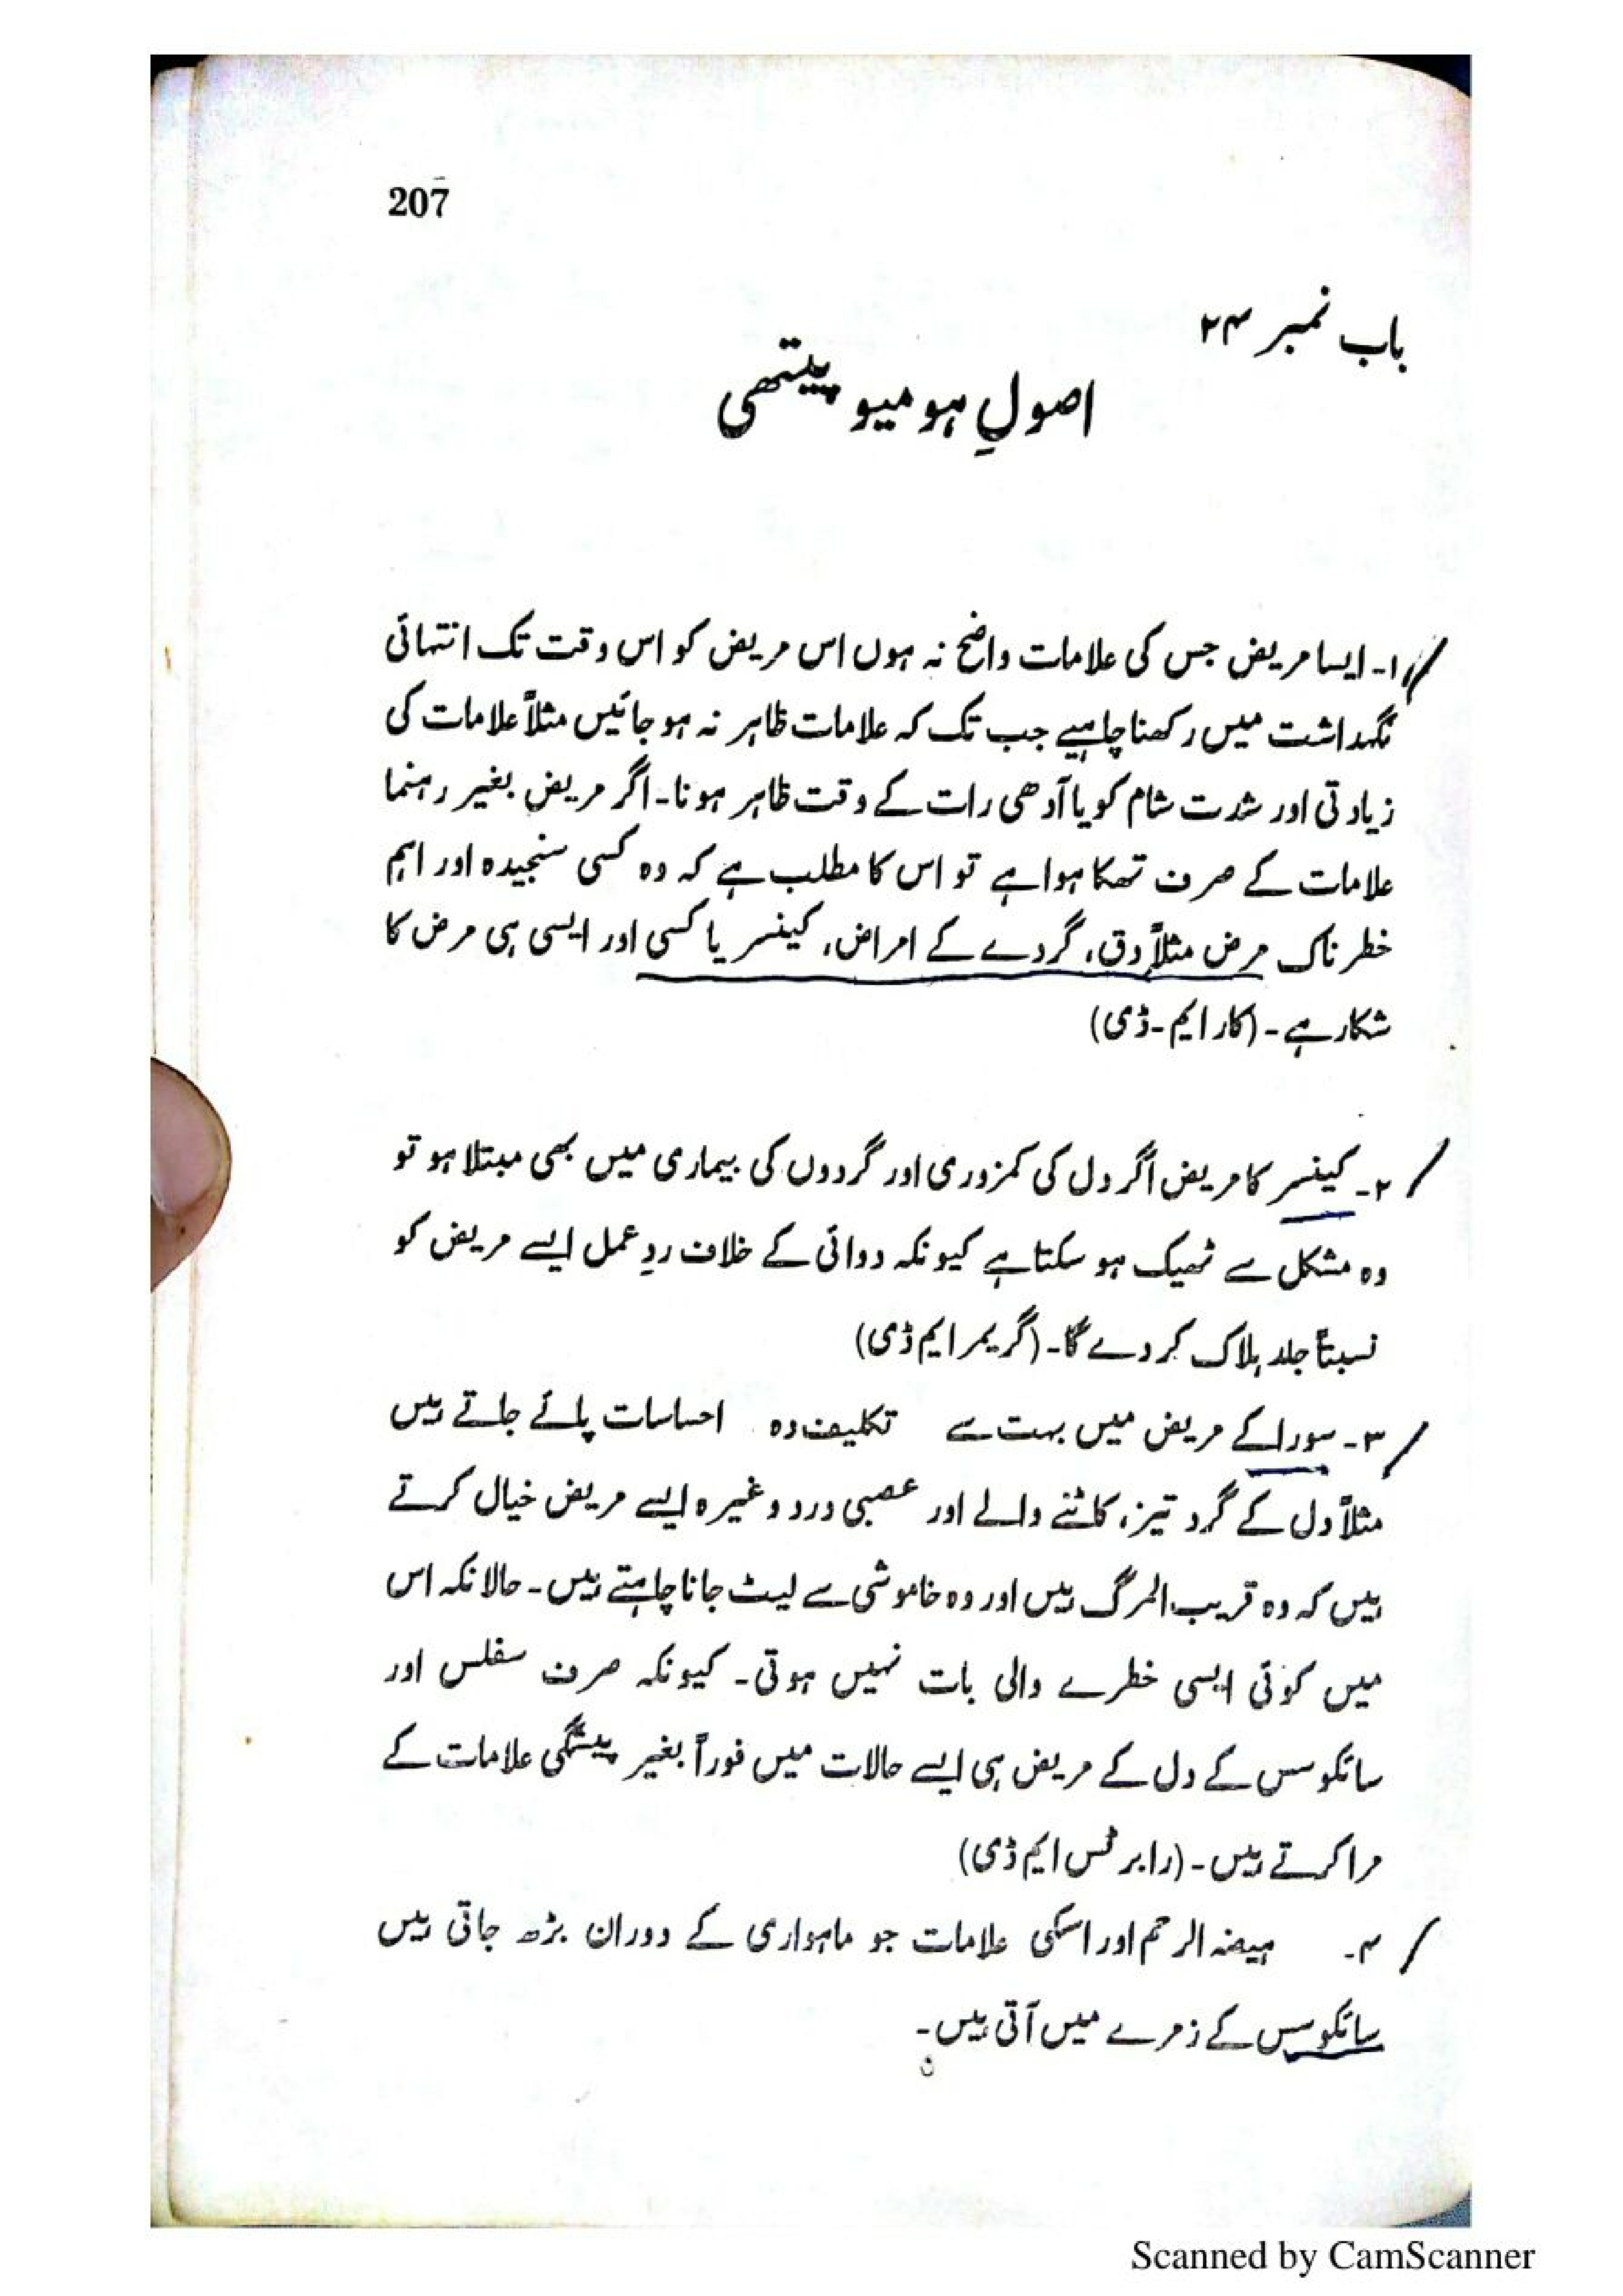 207
باب نمبر ۲۴
اصولِ ہومیو پیتھی
۱۔ ایسا مریض جس کی علامات واضح نہ ہوں اس مریض کو اس وقت تک انتہائی
نگہداشت میں رکھنا چاہیے جب تک کہ علامات ظاہر نہ ہو جائیں مثلاً علامات کی
زیادتی اور شدت شام کو یا آدھی رات کے وقت ظاہر ہونا۔ اگر مریض بغیر رہنما
علامات کے صرف تھکا ہوا ہے تو اس کا مطلب ہے کہ وہ کسی سنجیدہ اور اہم
خطرناک مرض مثلاً دق، گردے کے امراض، کینسر یا کسی اور ایسی ہی مرض کا
شکار ہے۔ (کار ایم۔ڈی)
۲۔ کینسر کا مریض اگر دل کی کمزوری اور گردوں کی بیماری میں بھی مبتلا ہو تو
وہ مشکل سے ٹھیک ہو سکتا ہے کیونکہ دوائی کے خلاف ردِ عمل ایسے مریض کو
نسبتاً جلد ہلاک کر دے گا۔ (گریمر ایم ڈی)
۳۔ سورا کے مریض میں بہت سے تکلیف دہ احساسات پائے جاتے ہیں
مثلاً دل کے گرد تیز، کاٹنے والے اور عصبی درد وغیرہ ایسے مریض خیال کرتے
ہیں کہ وہ قریب المرگ ہیں اور وہ خاموشی سے لیٹ جانا چاہتے ہیں۔ حالانکہ اس
میں کوئی ایسی خطرے والی بات نہیں ہوتی۔ کیونکہ صرف سفلس اور
سائکوسس کے دل کے مریض ہی ایسے حالات میں فوراً بغیر پیشگی علامات کے
مرا کرتے ہیں۔ (رابرٹس ایم ڈی)
۴۔ بیضہ الرحم اور اسکی علامات جو ماہواری کے دوران بڑھ جاتی ہیں
سائکوسس کے زمرے میں آتی ہیں۔
Scanned by CamScanner